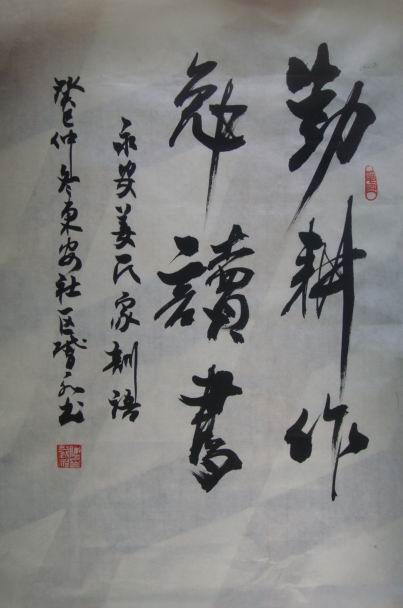 勤耕作
勉讀書
永安姜氏家訓語
癸巳仲冬東安社区書